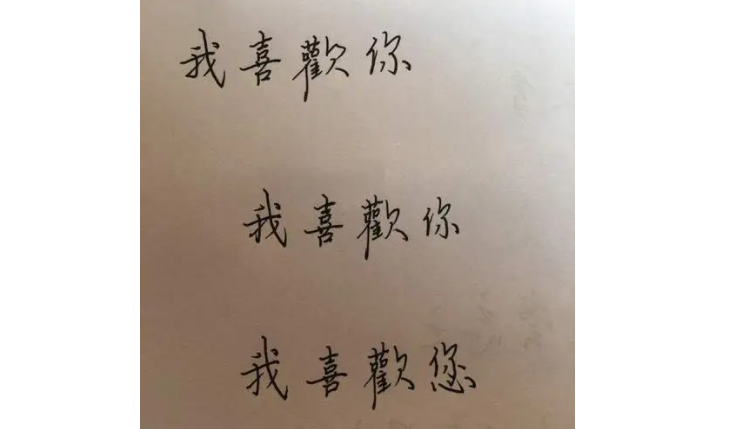 我喜歡你
我喜歡你
我喜歡您